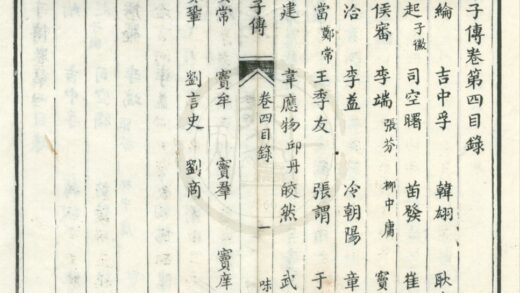 子傳卷第四目錄
綸 吉中孚 韓翃 耿
起子徽 司空曙 苗發 崔
侯審 李端張芬 柳中庸 竇
洽 李益 冷朝陽 章
當鄭常 王季友 張謂 于
建 韋應物邱丹 皎然 武
子傳 卷四目錄 一
常 竇牟 竇羣 竇庠
鞏 劉言史 劉商